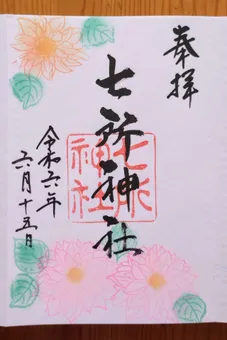 奉拝
七所神社
七所
神社
令和六年
六月十五日